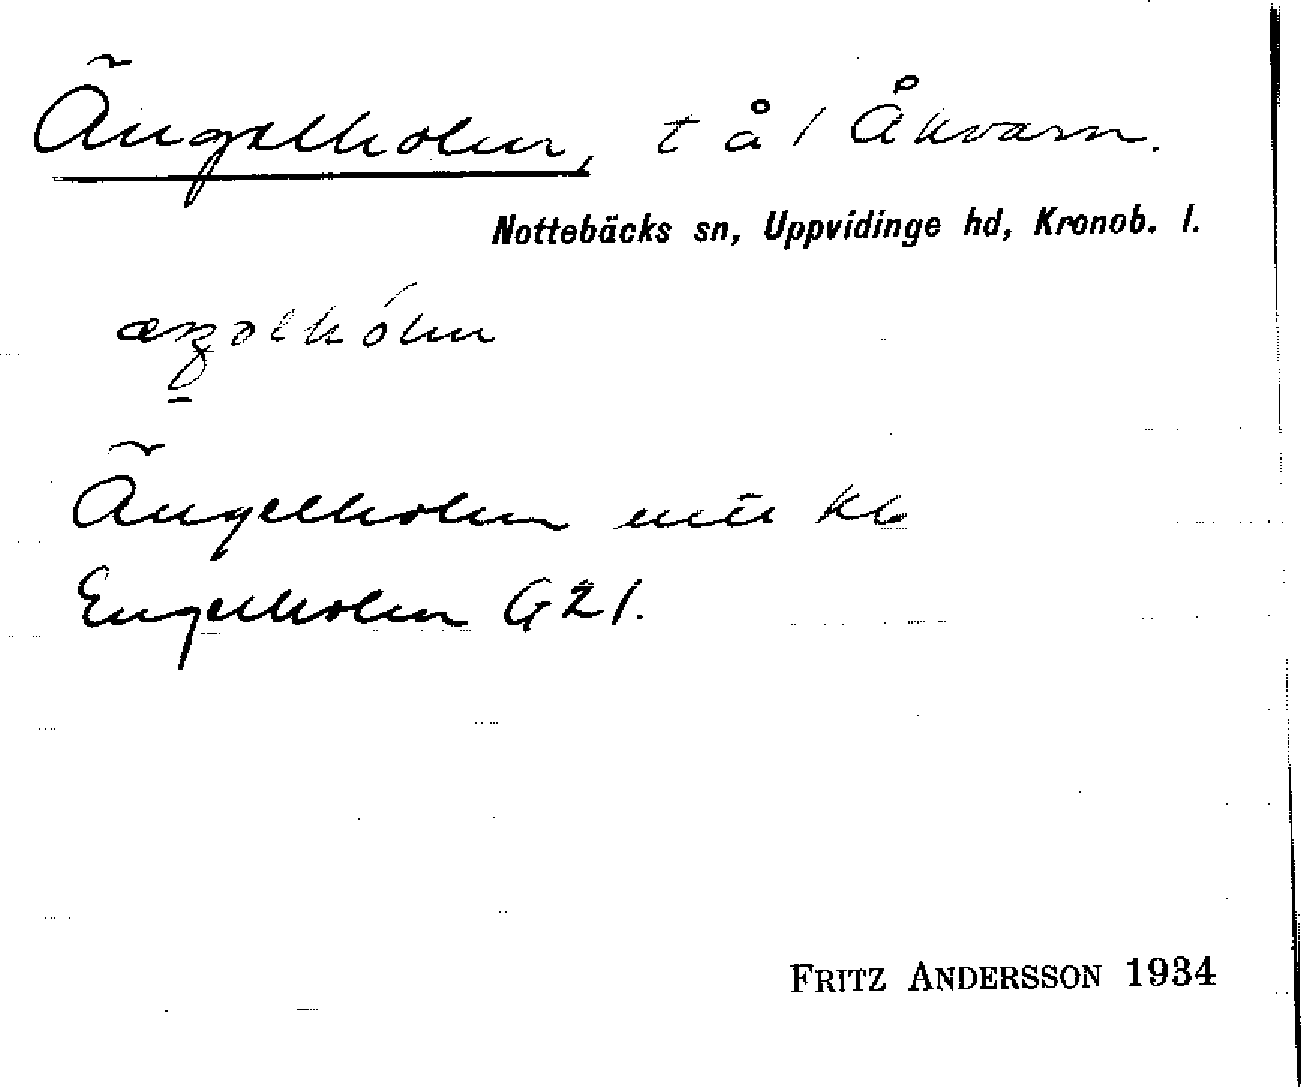 Ängelholm, t å 1 Åkvarn.
Nottebäcks sn, Uppvidinge hd, Kronob. l.
Ängelholm
Engelholm G21.
FRITZ ANDERSSON 1934